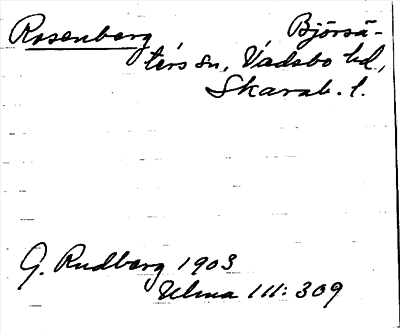 Rosenberg Björsä-
ters sn, Vadsbo hd,
Skarab. l.
G. Rudberg 1903
Ulma 111:309